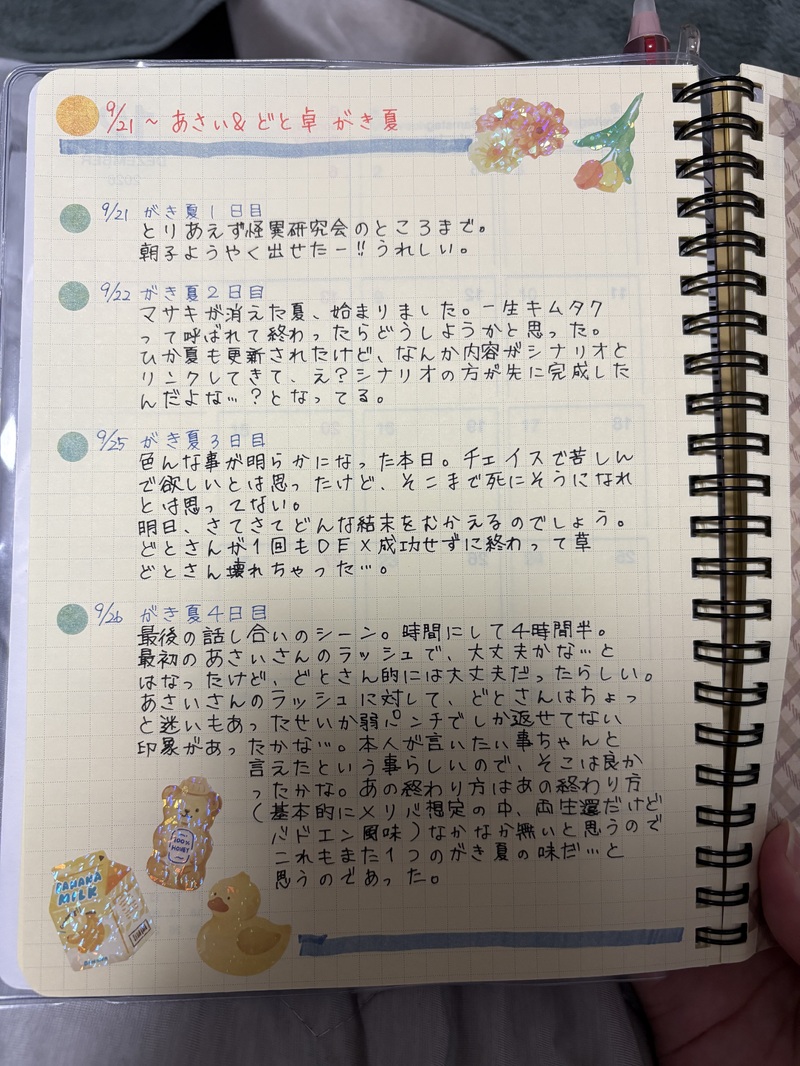 9/21 ~ あさい&どと卓 がき夏
9/21 がき夏1日目
とりあえず怪異研究会のところまで。
朝子ようやく出せたー!!うれしい。
9/22 がき夏2日目
マサキが消えた夏、始まりました。一生キムタク
って呼ばれて終わったらどうしようかと思った。
ひか夏も更新されたけど、なんか内容がシナリオと
リンクしてきて、え?シナリオの方が先に完成した
んだよな…?となってる。
9/25 がき夏3日目
色んな事が明らかになった本日。チェイスで苦しん
で欲しいとは思ったけど、そこまで死にそうになれ
とは思ってない。
明日、さてさてどんな結末をむかえるのでしょう。
どとさんが1回もDEX成功せずに終わって草
どとさん壊れちゃった…。
9/26 がき夏4日目
最後の話し合いのシーン。時間にして4時間半。
最初のあさいさんのラッシュで、大丈夫かな…と
はなったけど、どとさん的には大丈夫だったらしい。
あさいさんのラッシュに対して、どとさんはちょっ
と迷いもあったせいか弱パンチでしか返せてない
印象があったかな…。本人が言いたい事ちゃんと
言えたという事らしいので、そこは良か
ったかな。あの終わり方はあの終わり方
(基本的にメリバ想定の中、両生還だけど
バドエン風味)なかなか無いと思うので
これもまた1つのがき夏の味だ…と
思うのであった。
100%
HONEY
BANANA
MILK